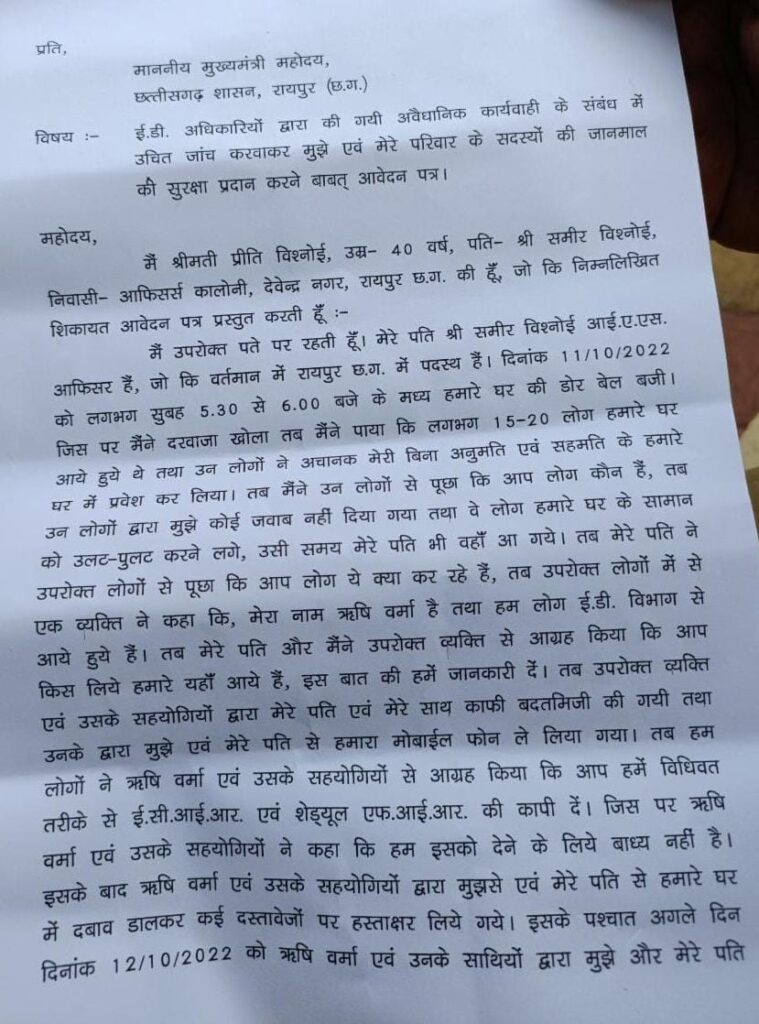 प्रति,
माननीय मुख्यमंत्री महोदय,
छत्तीसगढ़ शासन, रायपुर (छ.ग.)
विषय :- ई.डी. अधिकारियों द्वारा की गयी अवैधानिक कार्यवाही के संबंध में
उचित जांच करवाकर मुझे एवं मेरे परिवार के सदस्यों की जानमाल
की सुरक्षा प्रदान करने बाबत् आवेदन पत्र।
महोदय,
मैं श्रीमती प्रीति विश्नोई, उम्र- 40 वर्ष, पति- श्री समीर विश्नोई,
निवासी- आफिसर्स कालोनी, देवेन्द्र नगर, रायपुर छ.ग. की हूँ, जो कि निम्नलिखित
शिकायत आवेदन पत्र प्रस्तुत करती हूँ :-
मैं उपरोक्त पते पर रहती हूँ। मेरे पति श्री समीर विश्नोई आई.ए.एस.
आफिसर हैं, जो कि वर्तमान में रायपुर छ.ग. में पदस्थ हैं। दिनांक 11/10/2022
को लगभग सुबह 5.30 से 6.00 बजे के मध्य हमारे घर की डोर बेल बजी।
जिस पर मैंने दरवाजा खोला तब मैंने पाया कि लगभग 15-20 लोग हमारे घर
आये हुये थे तथा उन लोगों ने अचानक मेरी बिना अनुमति एवं सहमति के हमारे
घर में प्रवेश कर लिया। तब मैंने उन लोगों से पूछा कि आप लोग कौन हैं, तब
उन लोगों द्वारा मुझे कोई जवाब नहीं दिया गया तथा वे लोग हमारे घर के सामान
को उलट-पुलट करने लगे, उसी समय मेरे पति भी वहाँ आ गये। तब मेरे पति ने
उपरोक्त लोगों से पूछा कि आप लोग ये क्या कर रहे हैं, तब उपरोक्त लोगों में से
एक व्यक्ति ने कहा कि, मेरा नाम ऋषि वर्मा है तथा हम लोग ई.डी. विभाग से
आये हुये हैं। तब मेरे पति और मैंने उपरोक्त व्यक्ति से आग्रह किया कि आप
किस लिये हमारे यहाँ आये हैं, इस बात की हमें जानकारी दें। तब उपरोक्त व्यक्ति
एवं उसके सहयोगियों द्वारा मेरे पति एवं मेरे साथ काफी बदतमिजी की गयी तथा
उनके द्वारा मुझे एवं मेरे पति से हमारा मोबाईल फोन ले लिया गया। तब हम
लोगों ने ऋषि वर्मा एवं उसके सहयोगियों से आग्रह किया कि आप हमें विधिवत
तरीके से ई.सी.आई.आर. एवं शेड्यूल एफ.आई.आर. की कापी दें। जिस पर ऋषि
वर्मा एवं उसके सहयोगियों ने कहा कि हम इसको देने के लिये बाध्य नहीं है।
इसके बाद ऋषि वर्मा एवं उसके सहयोगियों द्वारा मुझसे एवं मेरे पति से हमारे घर
में दबाव डालकर कई दस्तावेजों पर हस्ताक्षर लिये गये। इसके पश्चात अगले दिन
दिनांक 12/10/2022 को ऋषि वर्मा एवं उनके साथियों द्वारा मुझे और मेरे पति